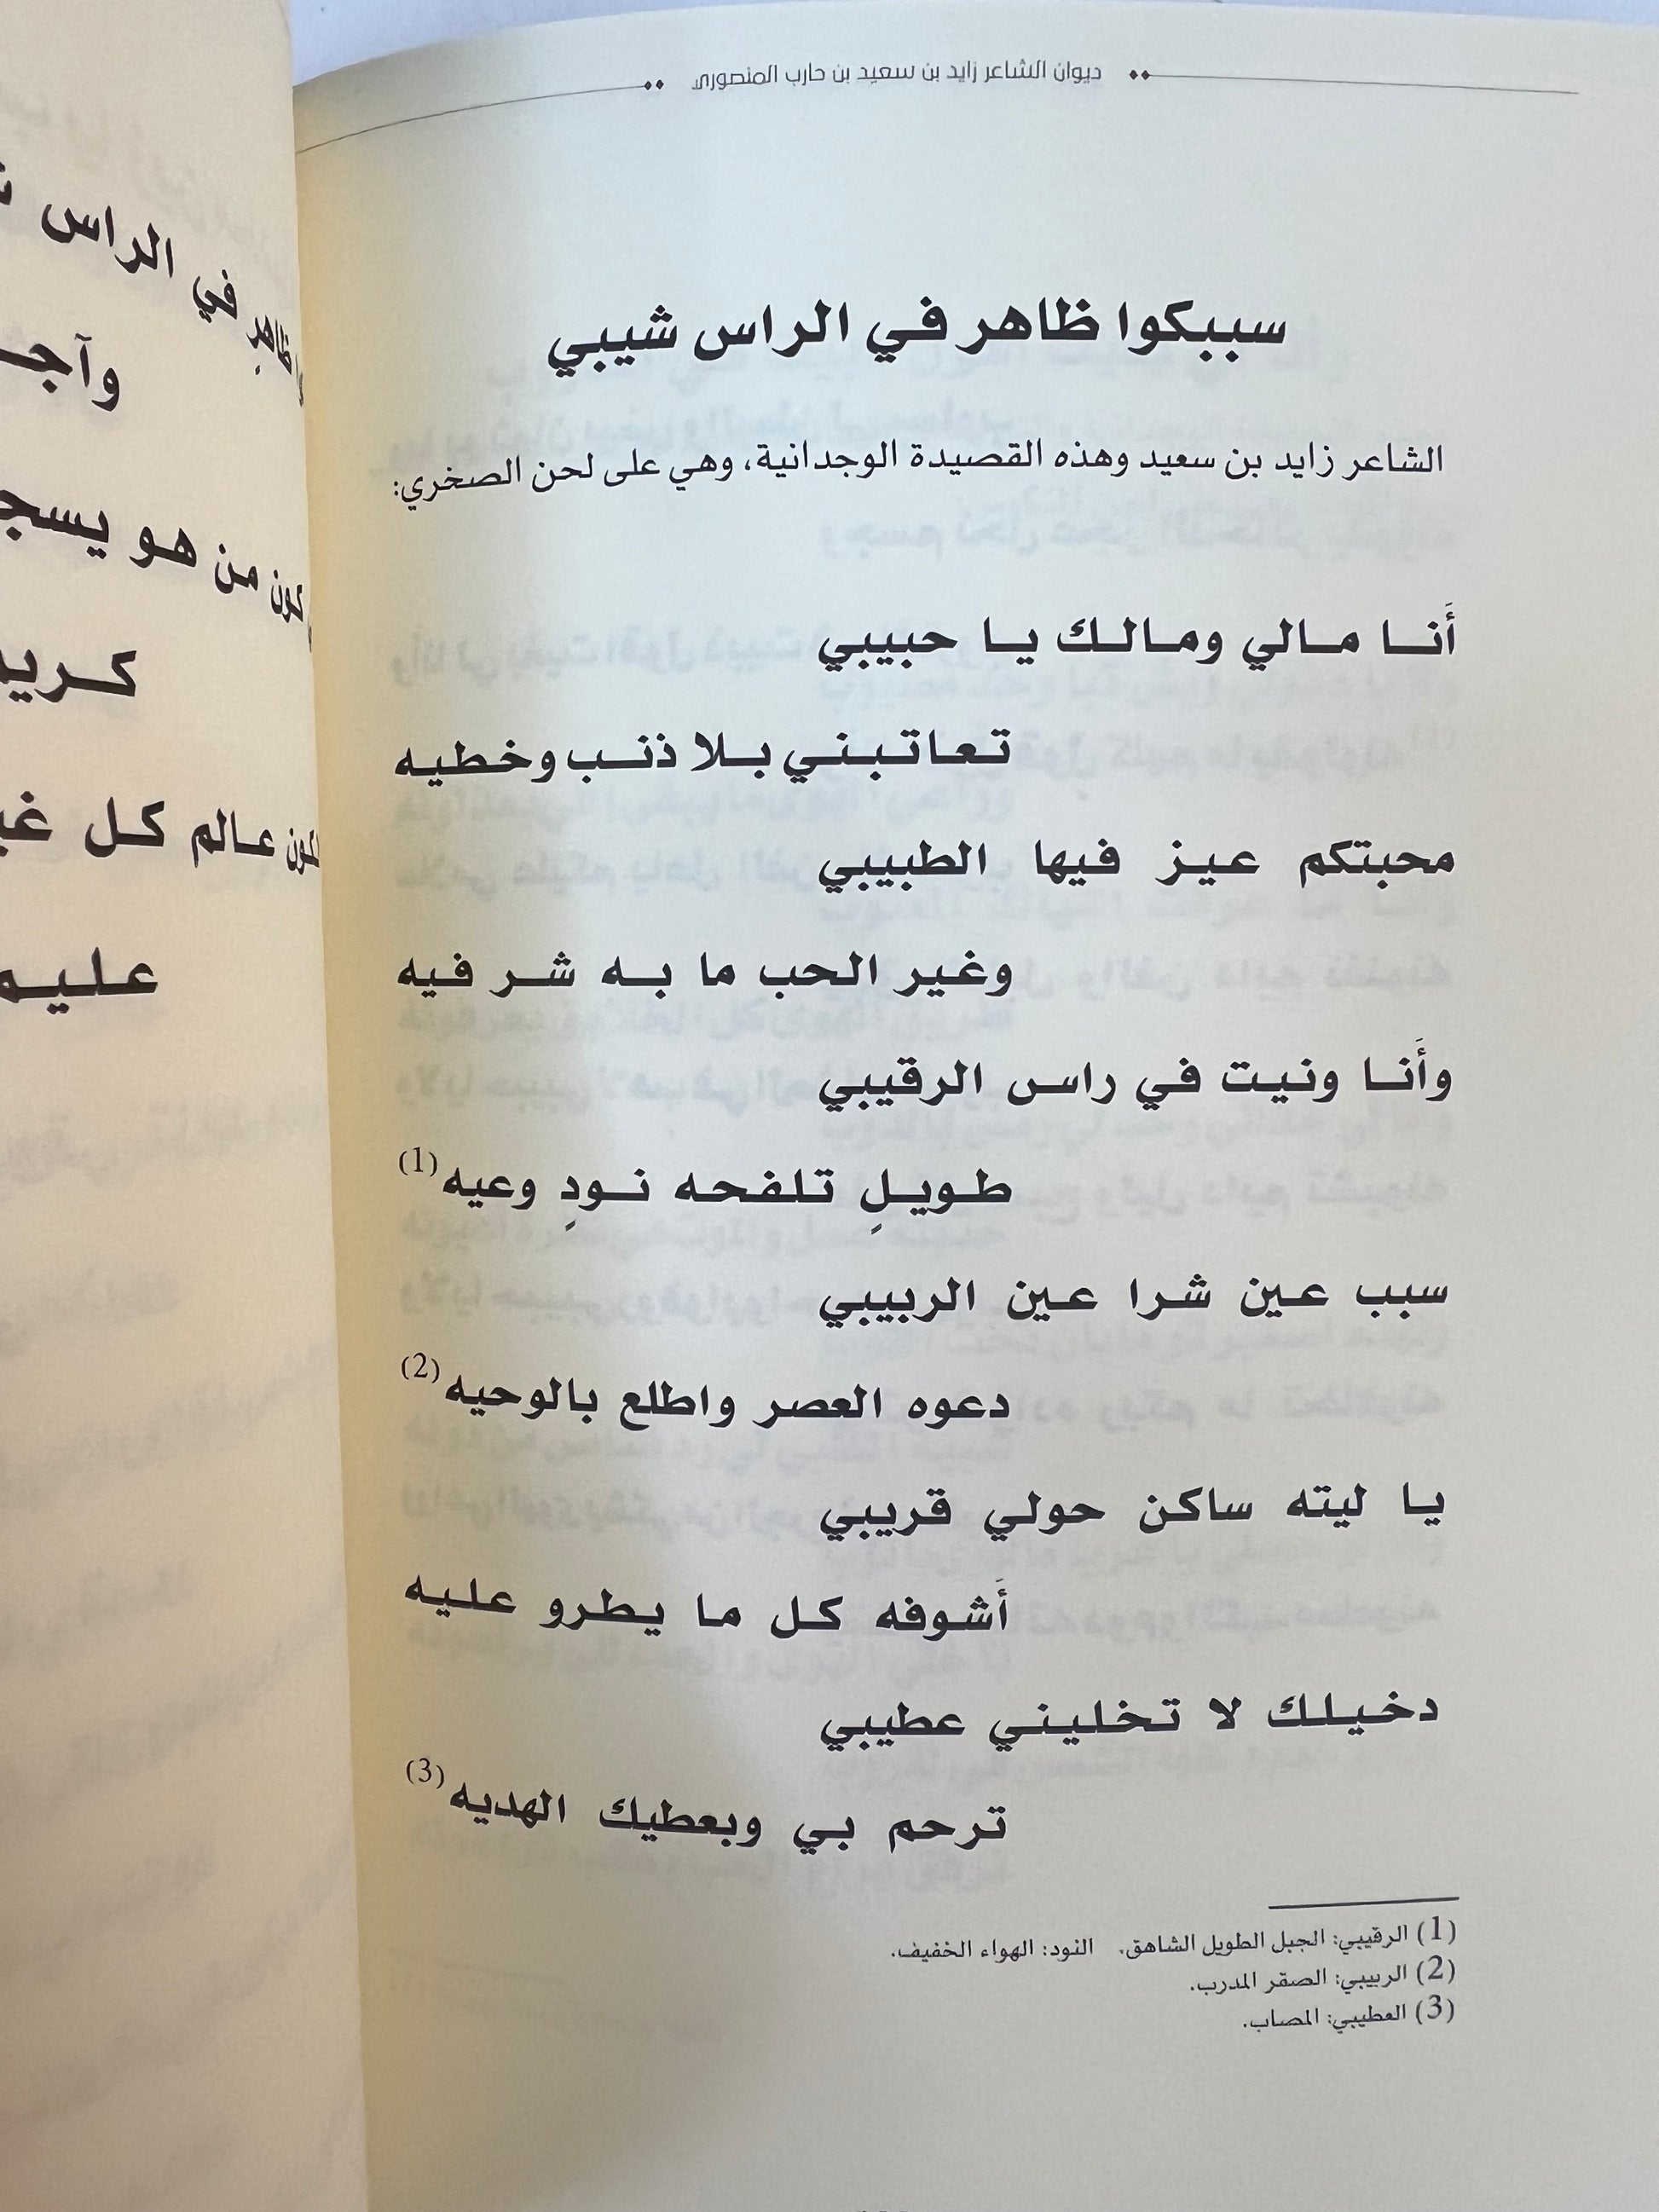 ديوان الشاعر زايد بن سعيد بن حارب المنصوري
سببكوا ظاهر في الراس شيبي
الشاعر زايد بن سعيد وهذه القصيدة الوجدانية، وهي على لحن الصخري:
أَنا مالي ومالك يا حبيبي
تعاتبني بلا ذنب وخطيه
محبتكم عيز فيها الطبيبي
وغير الحب ما به شر فيه
وأَنا ونيت في راس الرقيبي
طويلٍ تلفحه نودٍ وعيه (1)
سبب عين شرا عين الربيبي
دعوه العصر واطلع بالوحيه (2)
يا ليته ساكن حولي قريبي
أَشوفه كل ما يطرو عليه
دخيلك لا تخليني عطيبي
ترحم بي وبعطيك الهديه (3)
(1) الرقيبي: الجبل الطويل الشاهق. النود: الهواء الخفيف.
(2) الربيبي: الصقر المدرب.
(3) العطيبي: المصاب.
ظاهر في الراس
من هو
عالم كل